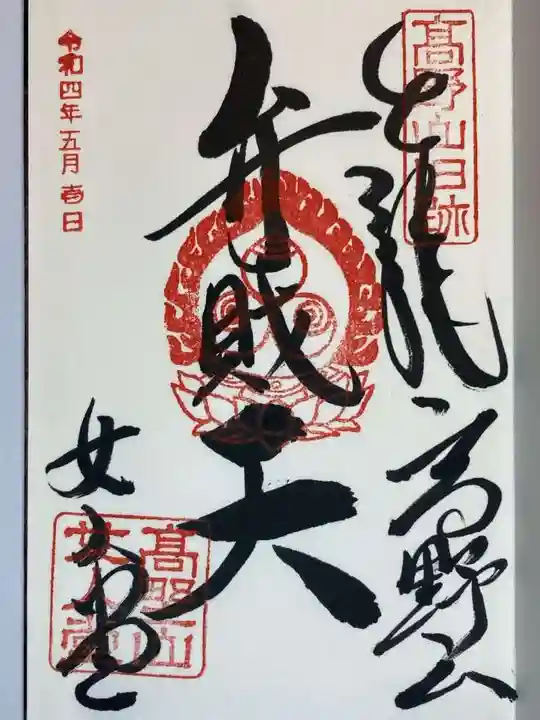 髙野山旧跡
龍
高野山
弁財天
令和四年五月壱日
女人堂
髙野山
女人堂